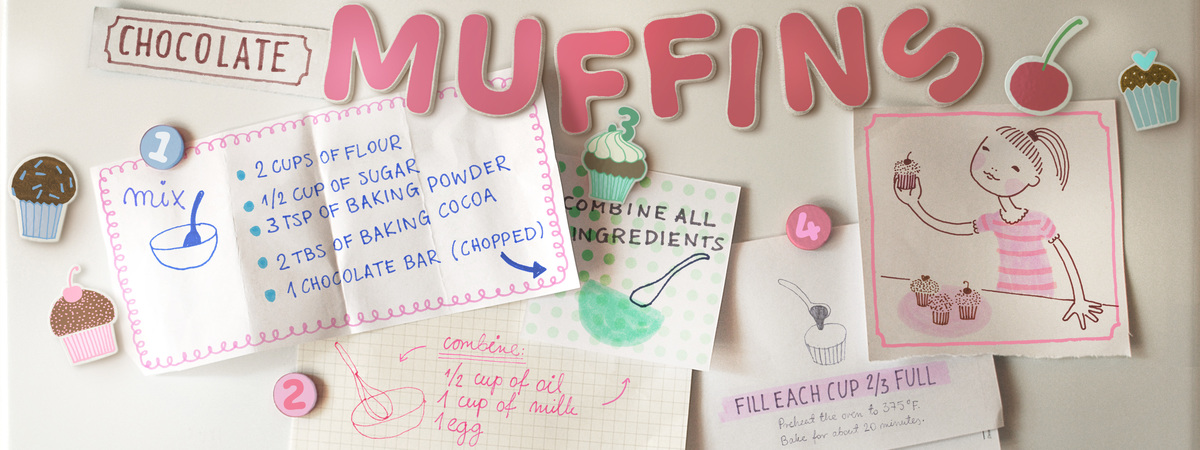 CHOCOLATE
MUFFINS
1
mix
2 CUPS OF FLOUR
1/2 CUP OF SUGAR
3 TSP OF BAKING POWDER
2 TBS OF BAKING COCOA
1 CHOCOLATE BAR (CHOPPED)
2
combine:
1/2 cup of oil
1 cup of milk
1 egg
3
COMBINE ALL
INGREDIENTS
4
FILL EACH CUP 2/3 FULL
Preheat the oven to 375°F.
Bake for about 20 minutes.